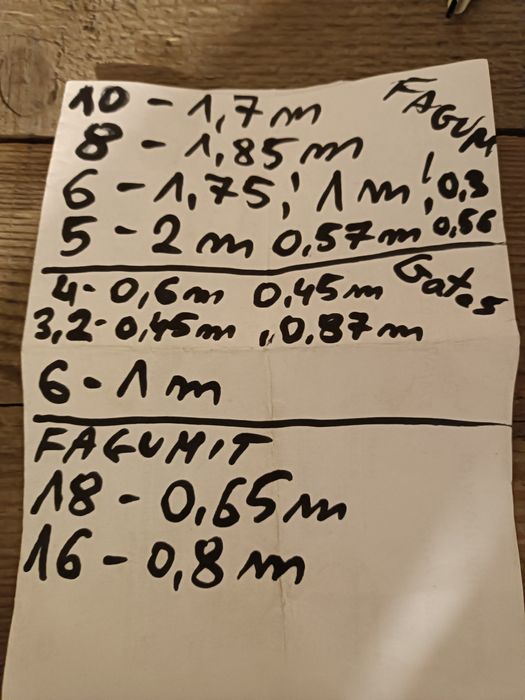 10 - 1,7 m FAGUM
8 - 1,85 m
6 - 1,75, 1 m, 0,3
5 - 2 m 0,57 m 0,56
4 - 0,6 m 0,45 m Gates
3,2 - 0,45 m, 0,87 m
6 - 1 m
FAGUMIT
18 - 0,65 m
16 - 0,8 m